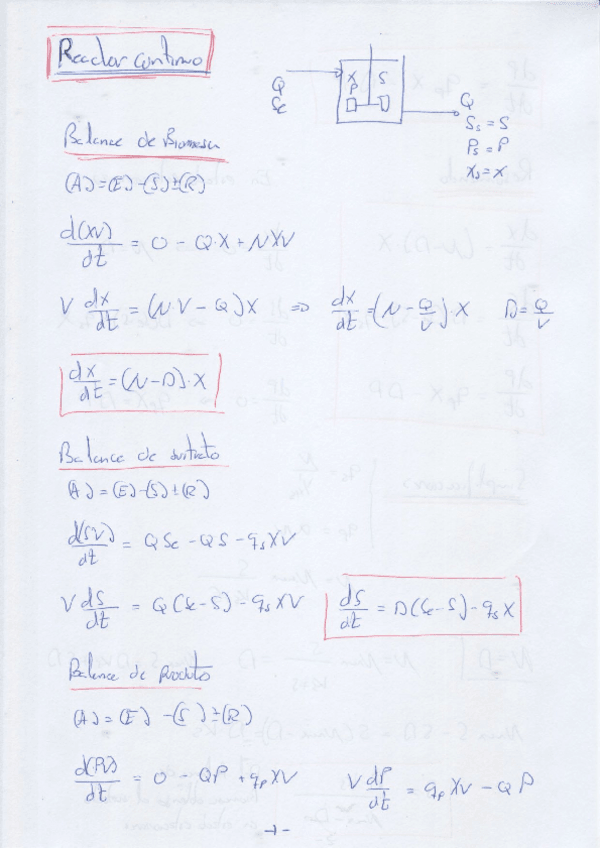 Reactor continuo
Q
Se
X S
P
Q
Ss = S
Ps = P
Xs = X
Balance de Biomasa
(A) = (E) - (S) ± (R)
d(XV)/dt = 0 - Q·X + μXV
V dX/dt = (μ·V - Q)X ⇒ dX/dt = (μ - Q/V)·X D = Q/V
dX/dt = (μ - D)·X
Balance de sustrato
(A) = (E) - (S) ± (R)
d(SV)/dt = QSe - QS - qsXV
V dS/dt = Q(Se - S) - qsXV dS/dt = D(Se - S) - qsX
Balance de Producto
(A) = (E) - (S) ± (R)
d(PV)/dt = 0 - QP + qpXV V dP/dt = qpXV - QP
-1-